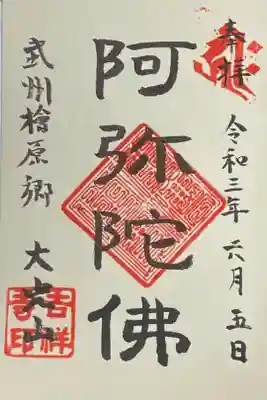 奉拝
令和三年六月五日
阿弥陀佛
武州檜原郷 大光山
吉祥寺印